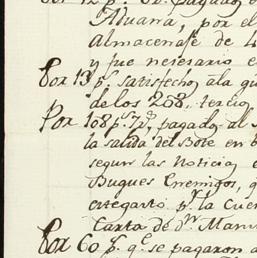 Por 12 p.s pagado
Aduana, por el
Almacenaje de
y fue nesesario e
Por 13 p.s satisfecho, a la
de los 208 tercio
Por 108 p.s 7 pagado al
la salida del Bote en b
segun las Noticia
Buques Enemigos, q
entregasto p.r la Cuen
Carta de D.n Manu
Por 60 p.s q.e se pagaron a